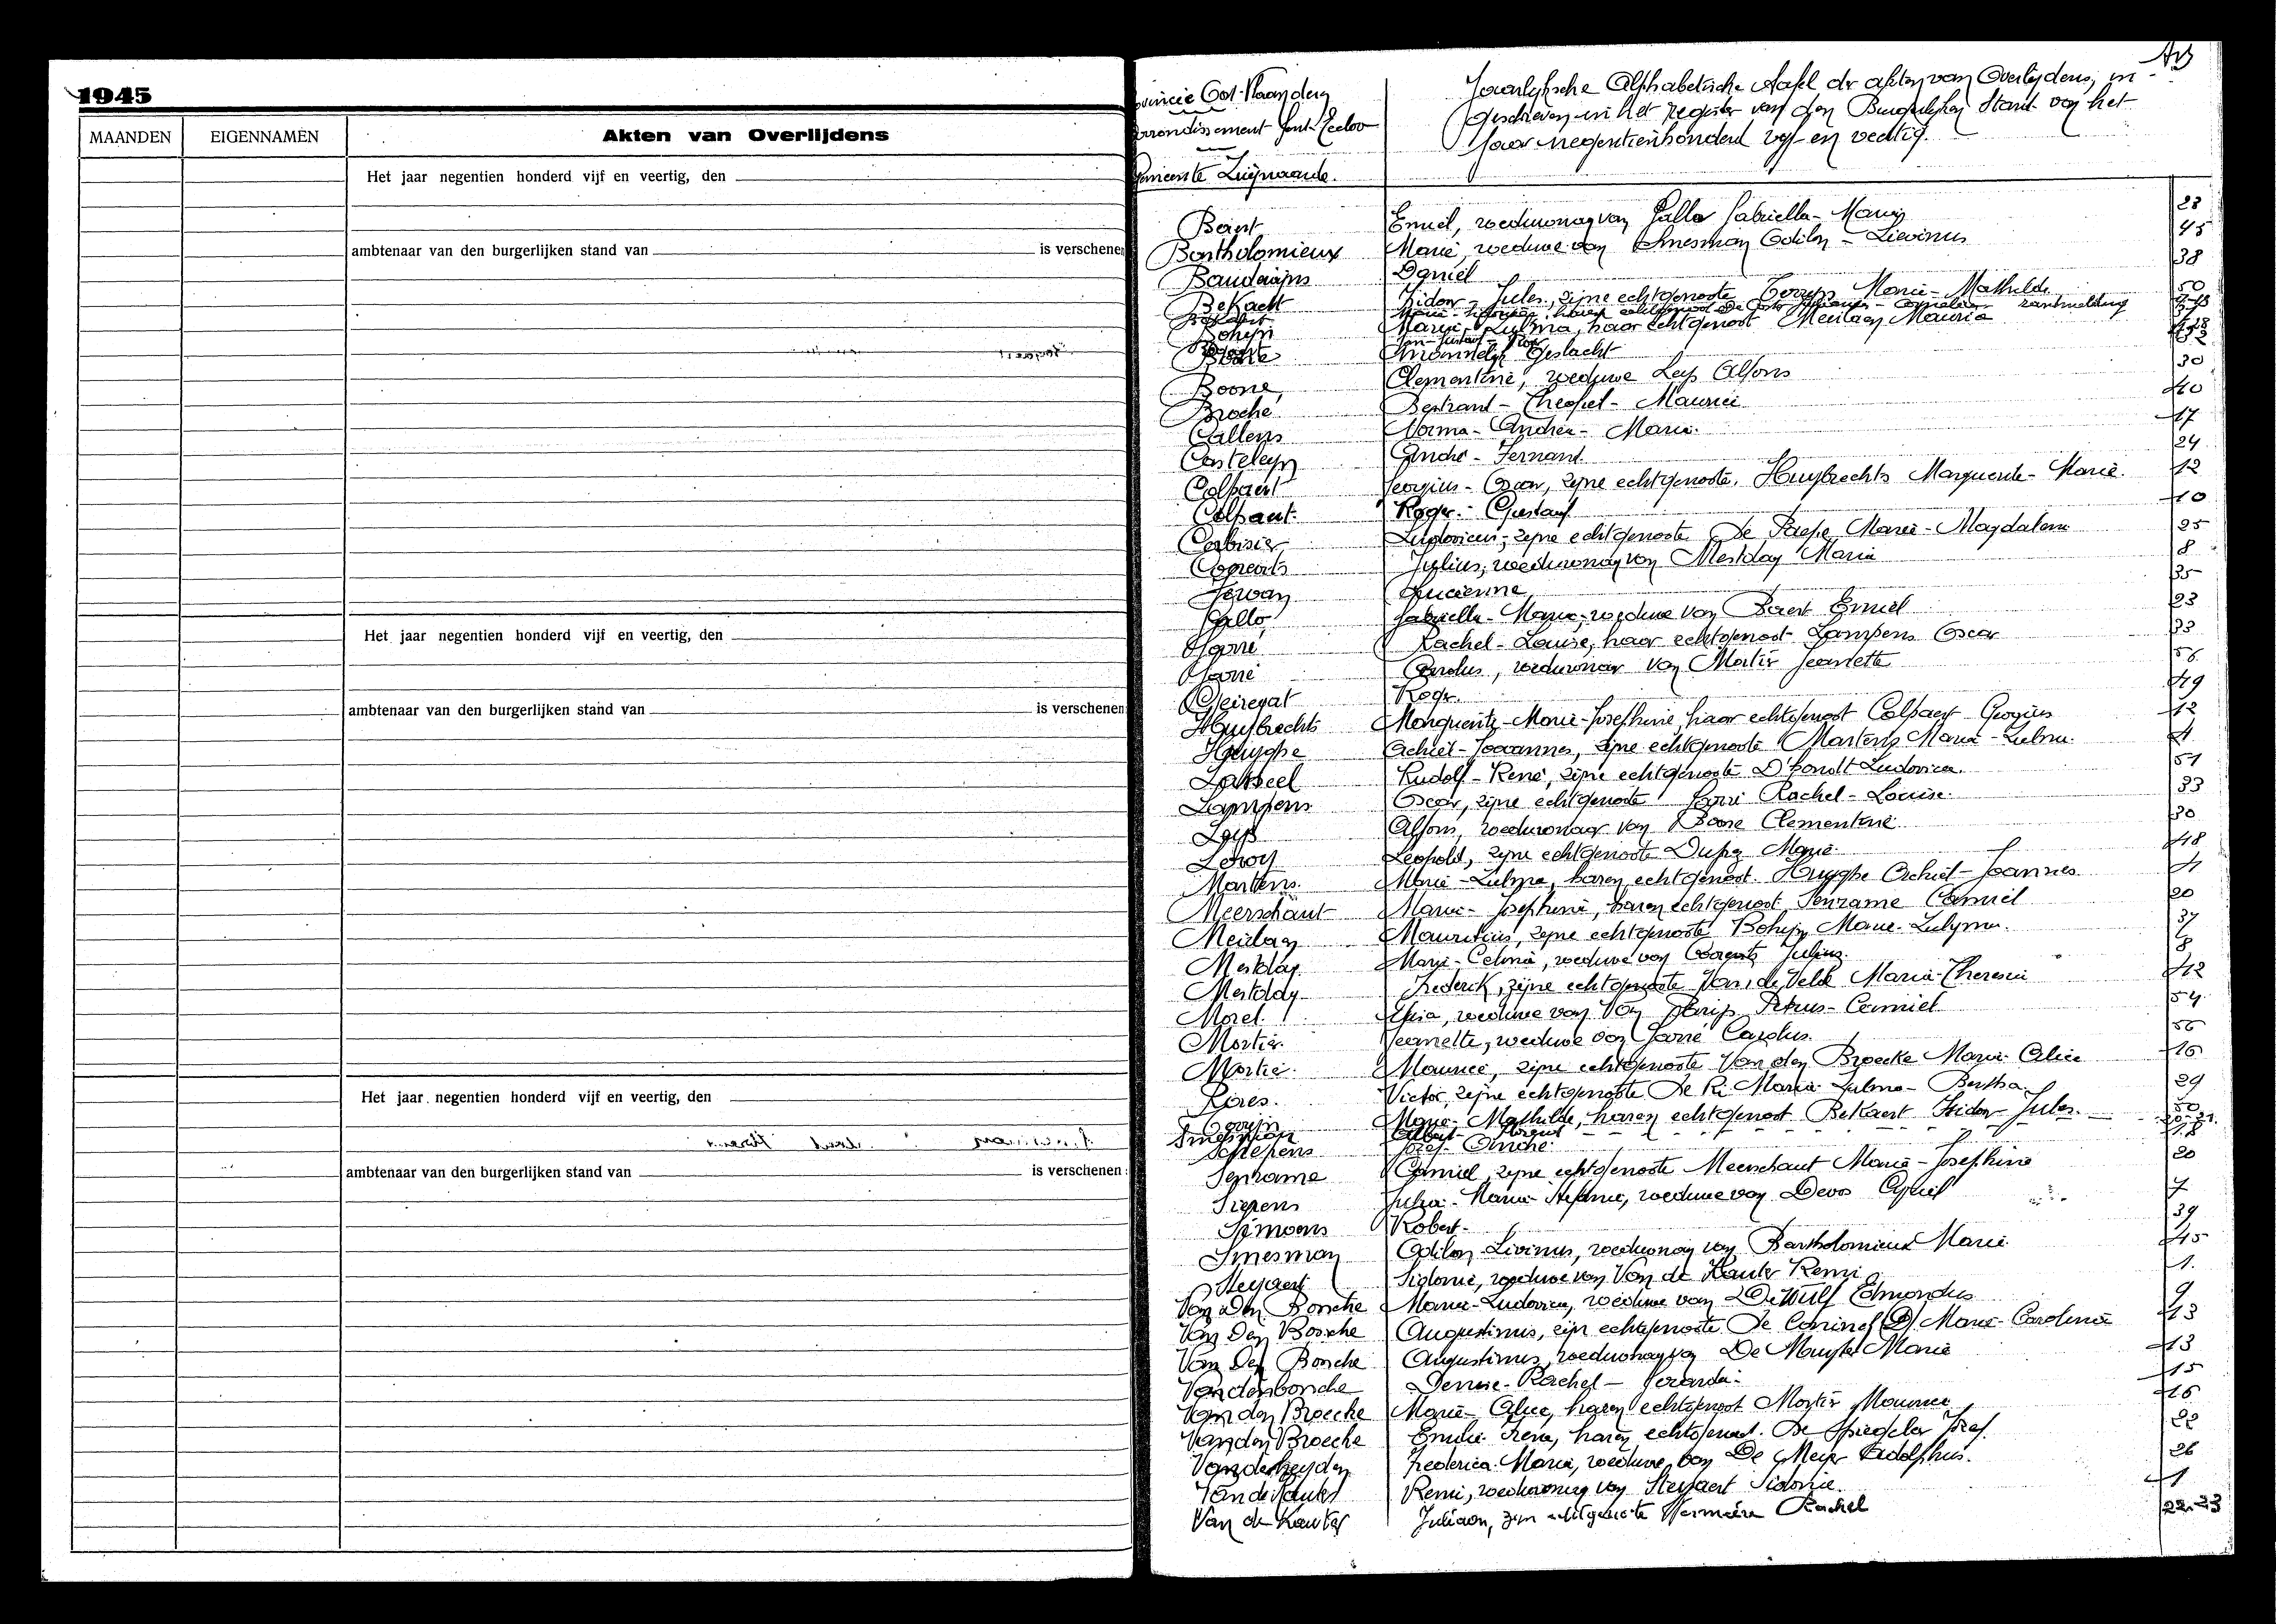 1945
MAANDEN
EIGENNAMEN
Akten van Overlijdens
Het jaar negentien honderd vijf en veertig, den
ambtenaar van den burgerlijken stand van
is verschenen
Het jaar negentien honderd vijf en veertig, den
ambtenaar van den burgerlijken stand van
is verschenen
Het jaar negentien honderd vijf en veertig, den
ambtenaar van den burgerlijken stand van
is verschenen
Jaarlijksche Alphabetische tafel der akten van Overlijdens, in
geschreven in het register van den Burgerlijken Stand van het
jaar negentienhonderd vijf en veertig.
Gemeente
Baert Emiel, weduwnaar van Gallo Gabriella-Maria 23
Bartholomieux Marie, weduwe van Smesman Odilon-Lievinus 45
Baudaijns Daniel 38
Bekaert Isidoor-Jules, zijne echtgenoote Marie-Mathilde 50
Boheyn haar echtgenoot
Mannelijk Geslacht
Boone, Clementine, weduwe Leys Alfons 30
Broché Bertrand-Theofiel-Maurice 40
Callens Norma-Andrea-Maria 17
Casteleyn André-Fernand 24
Colpaert Georgius-Oscar, zijne echtgenoote, Huybrechts Marguerite-Marie. 12
Colpaert Roger-Gustaaf 10
Ludovicus, zijne echtgenoote De Paepe Maria-Magdalena 25
Julius, weduwnaar van Mestdag Maria 8
Lucienne 35
Gallo Gabrielle-Maria, weduwe van Baert Emiel 23
Gorré Rachel-Louise, haar echtgenoot Lampens Oscar 33
Gorré Carolus, weduwnaar van Mortier Jeannette 56
Geiregat Roger. 49
Huybrechts Marguerite-Marie-Josephine, haar echtgenoot Colpaert Georgius 12
Huyghe Achiel-Joannes, zijne echtgenoote Martens Maria-Zulma. 4
Rudolf-René, zijne echtgenoote D'hondt Ludovica. 51
Lampens Oscar, zijne echtgenoote Gorré Rachel-Louise. 33
Leys Alfons, weduwnaar van Boone Clementine 30
Leroy Leopold, zijne echtgenoote Marie. 48
Martens. Marie-Zulma, haren echtgenoot. Huyghe Achiel-Joannes 4
Meerschaut Maria-Josephine, haren echtgenoot Senrame Camiel 20
Meirlaen Mauritius, zijne echtgenoote Boheyn Marie-Zulma. 37
Mestdag Marie-Celina, weduwe van Julius. 8
Mestdag Frederik, zijne echtgenoote Van de Velde Maria-Theresia 42
Morel. weduwe van Van Petrus-Camiel 54
Mortier. Jeannette, weduwe van Gorré Carolus. 56
Mortier. Maurice, zijne echtgenoote Van den Broecke Marie-Alice 16
Victor, zijne echtgenoote De Maria-Zulma-Bertha. 29
Marie-Mathilde, haren echtgenoot Bekaert Isidor-Jules. 50
Smesman Albert-Florent
Schepens Jozef-André 18
Senrame Camiel, zijne echtgenoote Meerschaut Marie-Josephine 20
Siepens Julia-Maria-Stefanie, weduwe van Devos Cyriel 7
Simoens Robert. 39
Smesman Odilon-Livinus, weduwnaar van Bartholomieux Marie. 45
Steyaert Sidonie, weduwe van Van de Kauter Remi 1.
Van den Bossche Maria-Ludovica, weduwe van De Wulf Edmondus 9
Van Den Bossche Augustinus, zijn echtgenoote De Coninck Marie-Carolina 13
Van Den Bossche Augustinus, weduwnaar van De Muyter Marie 13
Vandenbossche Denise-Rachel-Gerarda. 15
Van den Broecke Marie-Alice, haren echtgenoot Mortier Maurice 16
Van den Broecke Emilie-Irena, haren echtgenoot. De Spiegeler Jozef. 22
Vanderheyden Frederica-Maria, weduwe van De Meyer Adolphus. 26
Van de Kauter Remi, weduwnaar van Steyaert Sidonie. 1
Van de Kauter Juliaan, zijn echtgenoote Vermeire Rachel 22-23